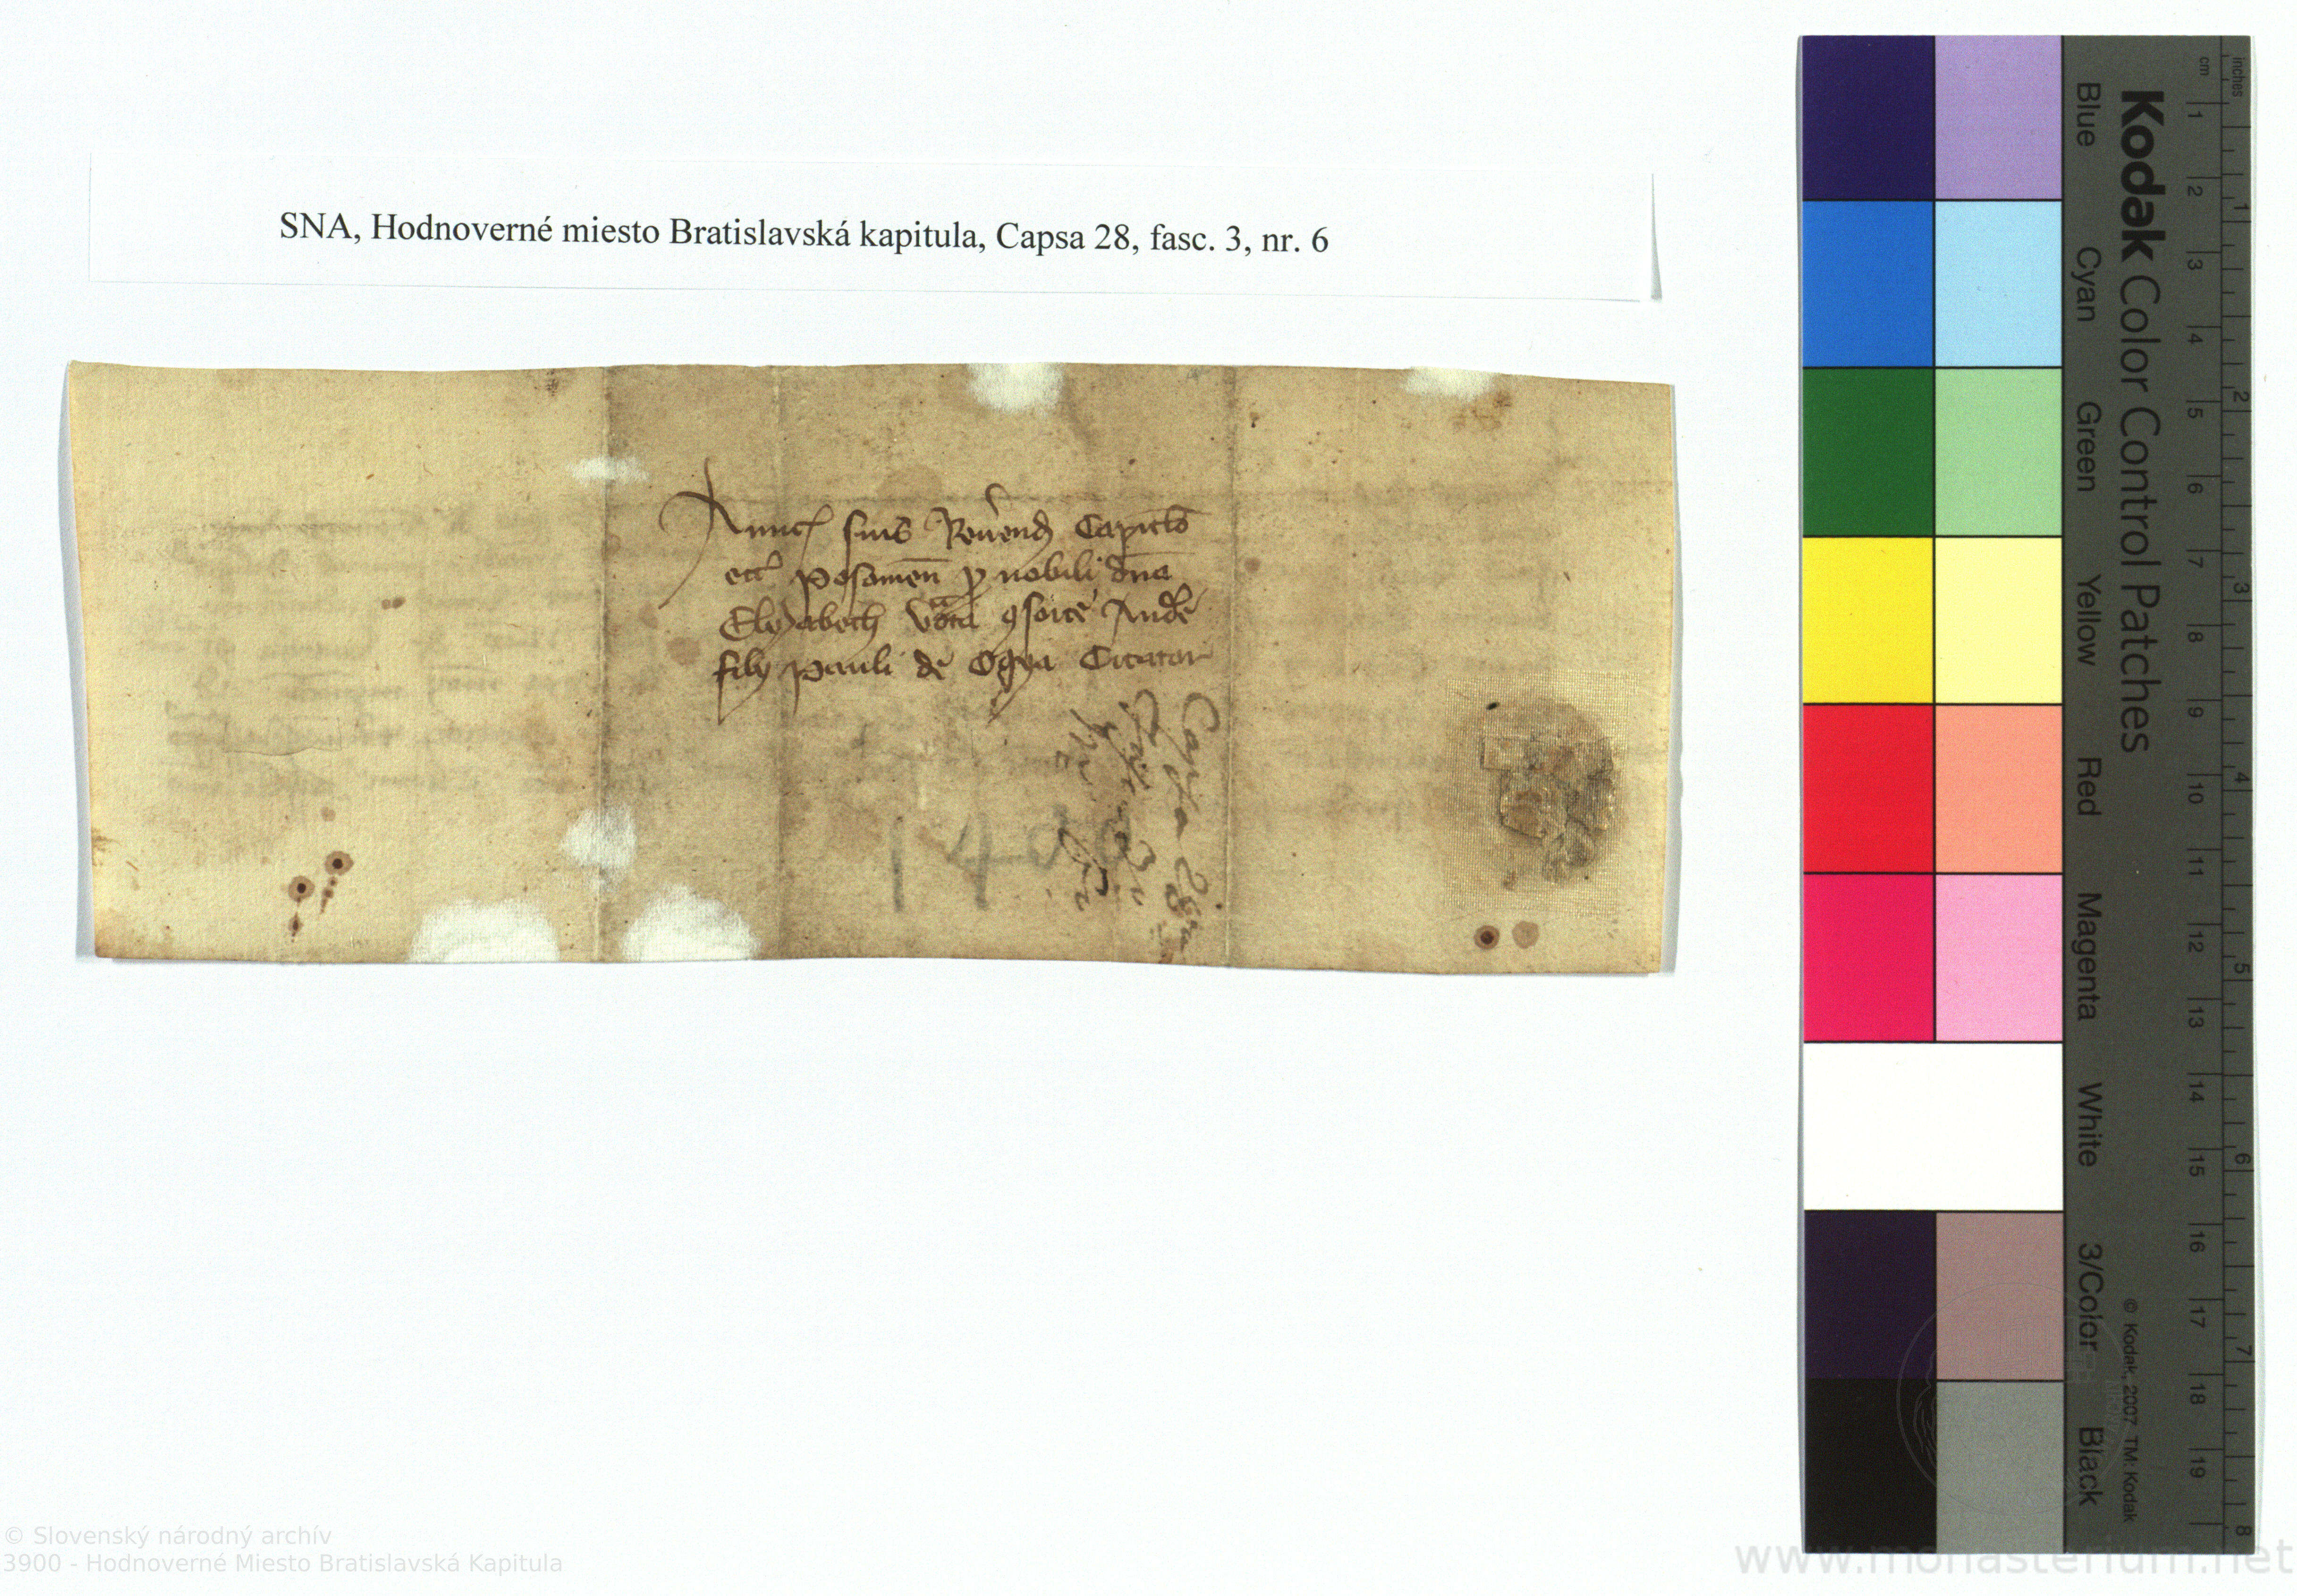 SNA, Hodnoverné miesto Bratislavská kapitula, Capsa 28, fasc. 3, nr. 6
Amicꝭ suis Reuendꝭ Capitlo
eccͥ posomen̄ ꝓ nobili dn̄a
Elyzabeth vocata ꝯsorte Andͤe
filij pauli de Ogya Citator
Capsa 28va
Fasc. 3
Nr. 6
Kodak Color Control Patches
Blue Cyan Green Yellow Red Magenta White 3/Color Black
© Kodak, 2007 TM: Kodak
cm 1 2 3 4 5 6 7 8 9 10 11 12 13 14 15 16 17 18 19
inches 1 2 3 4 5 6 7 8
© Slovenský národný archív
3900 - Hodnoverné Miesto Bratislavská Kapitula
www.monasterium.net